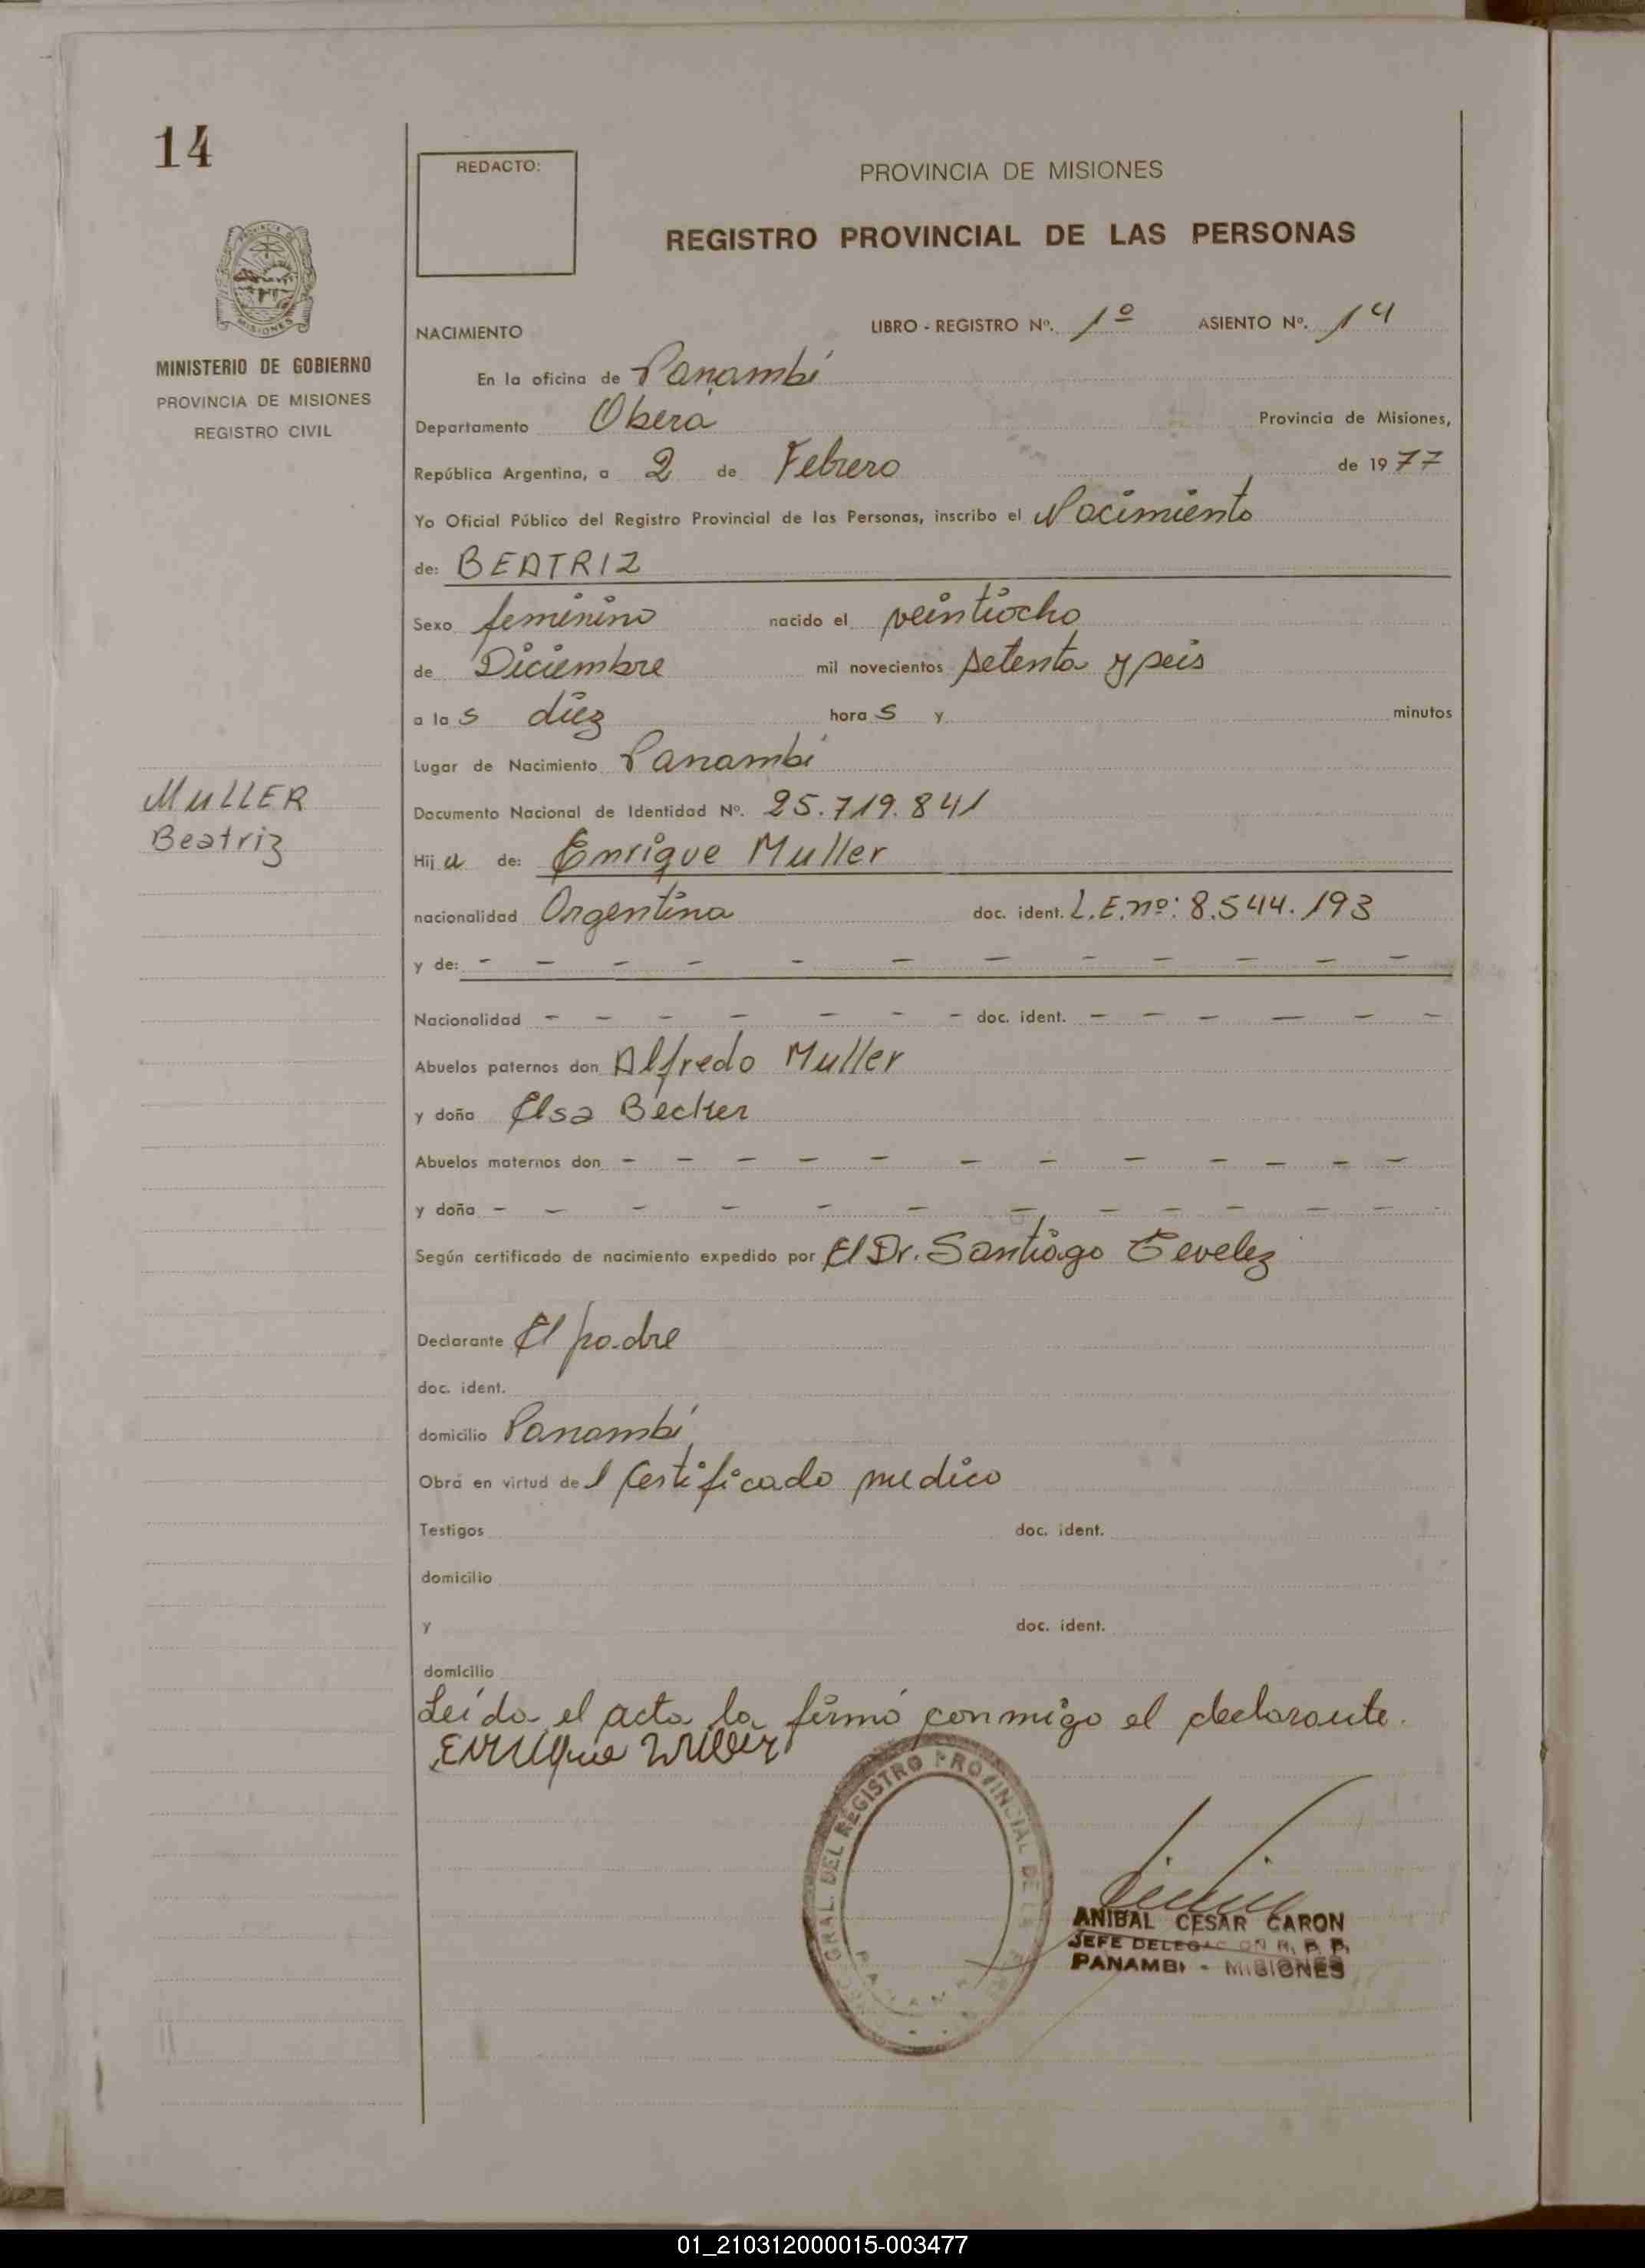 14
REDACTO:
PROVINCIA DE MISIONES
REGISTRO PROVINCIAL DE LAS PERSONAS
PROVINCIA DE
MISIONES
MINISTERIO DE GOBIERNO
PROVINCIA DE MISIONES
REGISTRO CIVIL
NACIMIENTO LIBRO - REGISTRO Nº. 1º ASIENTO Nº. 14
En la oficina de Panambí
Departamento Obera Provincia de Misiones,
República Argentina, a 2 de Febrero de 1977
Yo Oficial Público del Registro Provincial de las Personas, inscribo el Nacimiento
de: BEATRIZ
Sexo feminino nacido el veintiocho
de Diciembre mil novecientos setenta y seis
a las diez horas y minutos
Lugar de Nacimiento Panambí
MULLER
Beatriz
Documento Nacional de Identidad Nº. 25.719.841
Hija de: Enrique Muller
nacionalidad Argentina doc. ident. L.E.nº: 8.544.193
y de: - - - - - - - - - - - -
Nacionalidad - - - - - - - doc. ident. - - - - - -
Abuelos paternos don Alfredo Muller
y doña Elsa Becker
Abuelos maternos don - - - - - - - - - - - -
y doña - - - - - - - - - - - - -
Según certificado de nacimiento expedido por El Dr. Santiago Tevelez
Declarante El padre
doc. ident.
domicilio Panambí
Obra en virtud del Certificado medico
Testigos doc. ident.
domicilio
y doc. ident.
domicilio
Leída el acta la firmó conmigo el declarante.
Enrique Muller
GRAL. DEL REGISTRO PROVINCIAL DE LAS
PANAMBI
ANIBAL CESAR CARON
JEFE DELEGACION R. P. P.
PANAMBI - MISIONES
01_210312000015-003477